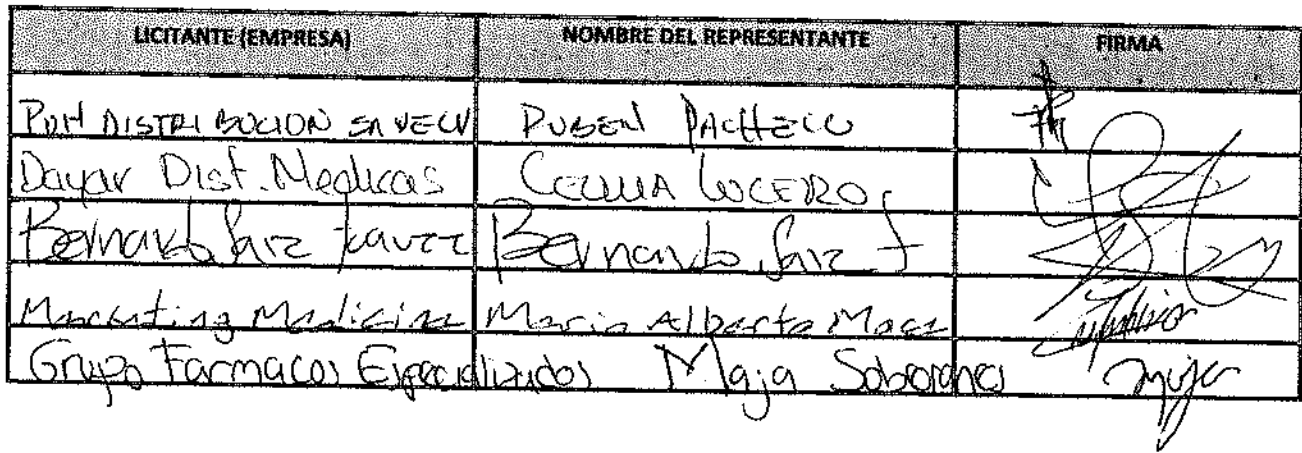 LICITANTE (EMPRESA) NOMBRE DEL REPRESENTANTE FIRMA
DISTRIBUCION SA DE CV RUBEN PACHECO
Dayar Dist. Medicas CECILIA LUCERO
Bernardo Bernardo
Marketing Medicine Mario Alberto
Grupo Farmacos Especializados Maja Soberanes